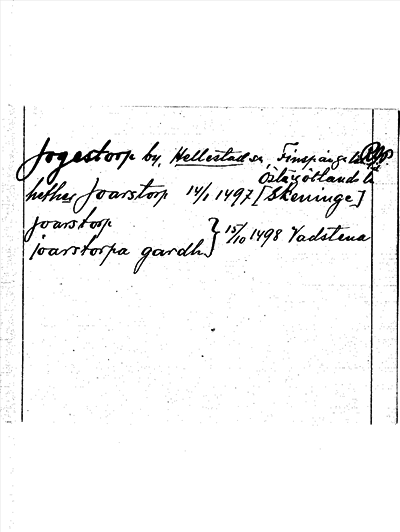 Jogestorp by, Hellestad sn, Finspånga l
Östergötlands l
hether Joarstorp 14/1 1497 [Skeninge]
Joarstorp
joarstorpa gardh } 15/10 1498 Vadstena